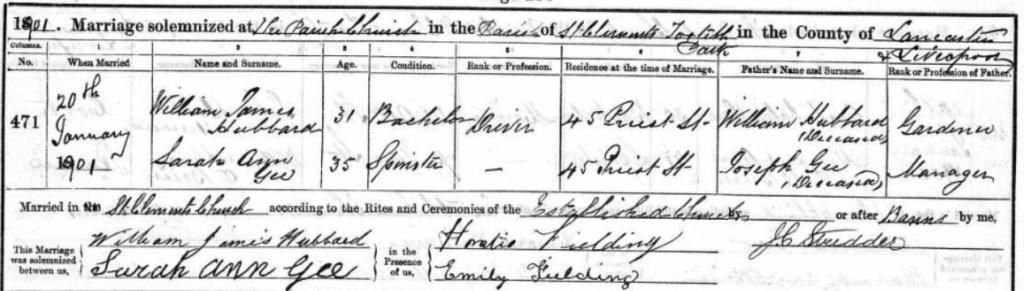 1901. Marriage solemnized at The Parish Church in the Parish of St Clements Toxteth Park in the County of Lancaster & Liverpool
Columns. 2 3 4 5 6 7
No. When Married Name and Surname. Age. Condition. Rank or Profession. Residence at the time of Marriage. Father's Name and Surname. Rank or Profession of Father.
471 20th January 1901 William James Hubbard 31 Bachelor Driver 45 Priest St William Hubbard (Deceased) Gardener
Sarah Ann Gee 35 Spinster — 45 Priest St Joseph Gee (Deceased) Manager
Married in the St Clements Church according to the Rites and Ceremonies of the Established Church by or after Banns by me,
This Marriage was solemnized between us, William James Hubbard in the Presence of us, Horatio Fielding J C Studder
Sarah Ann Gee Emily Fielding